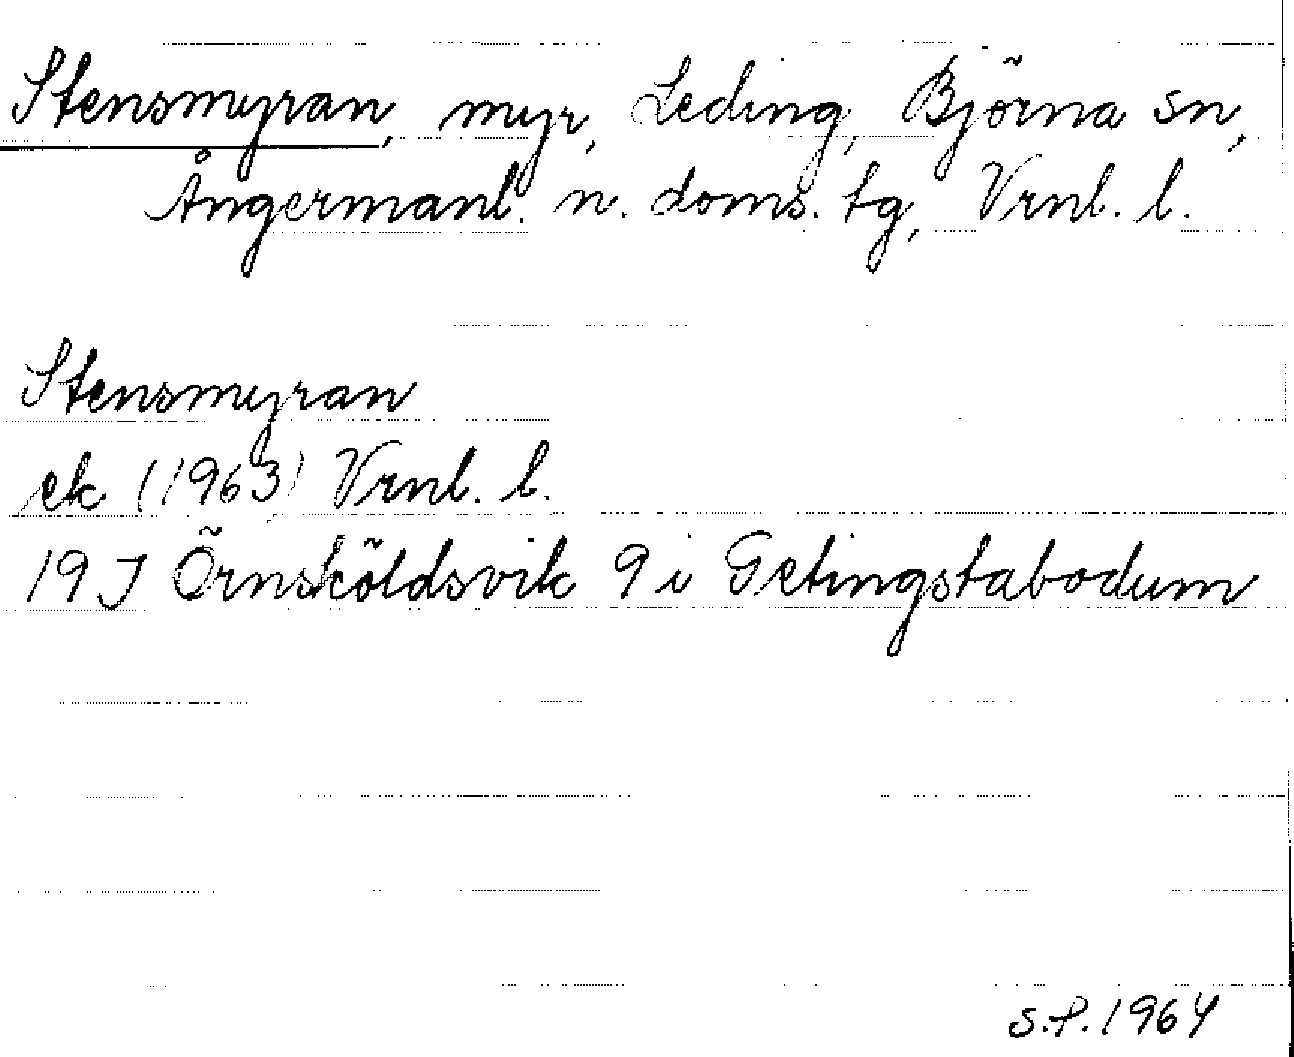 Stensmyran, myr, Leding, Björna sn,
Ångermanl. n. doms. tg, Vrnl. l.
Stensmyran
ek (1963) Vrnl. l.
19 J Örnsköldsvik 9 i Getingstabodum
S.P. 1964